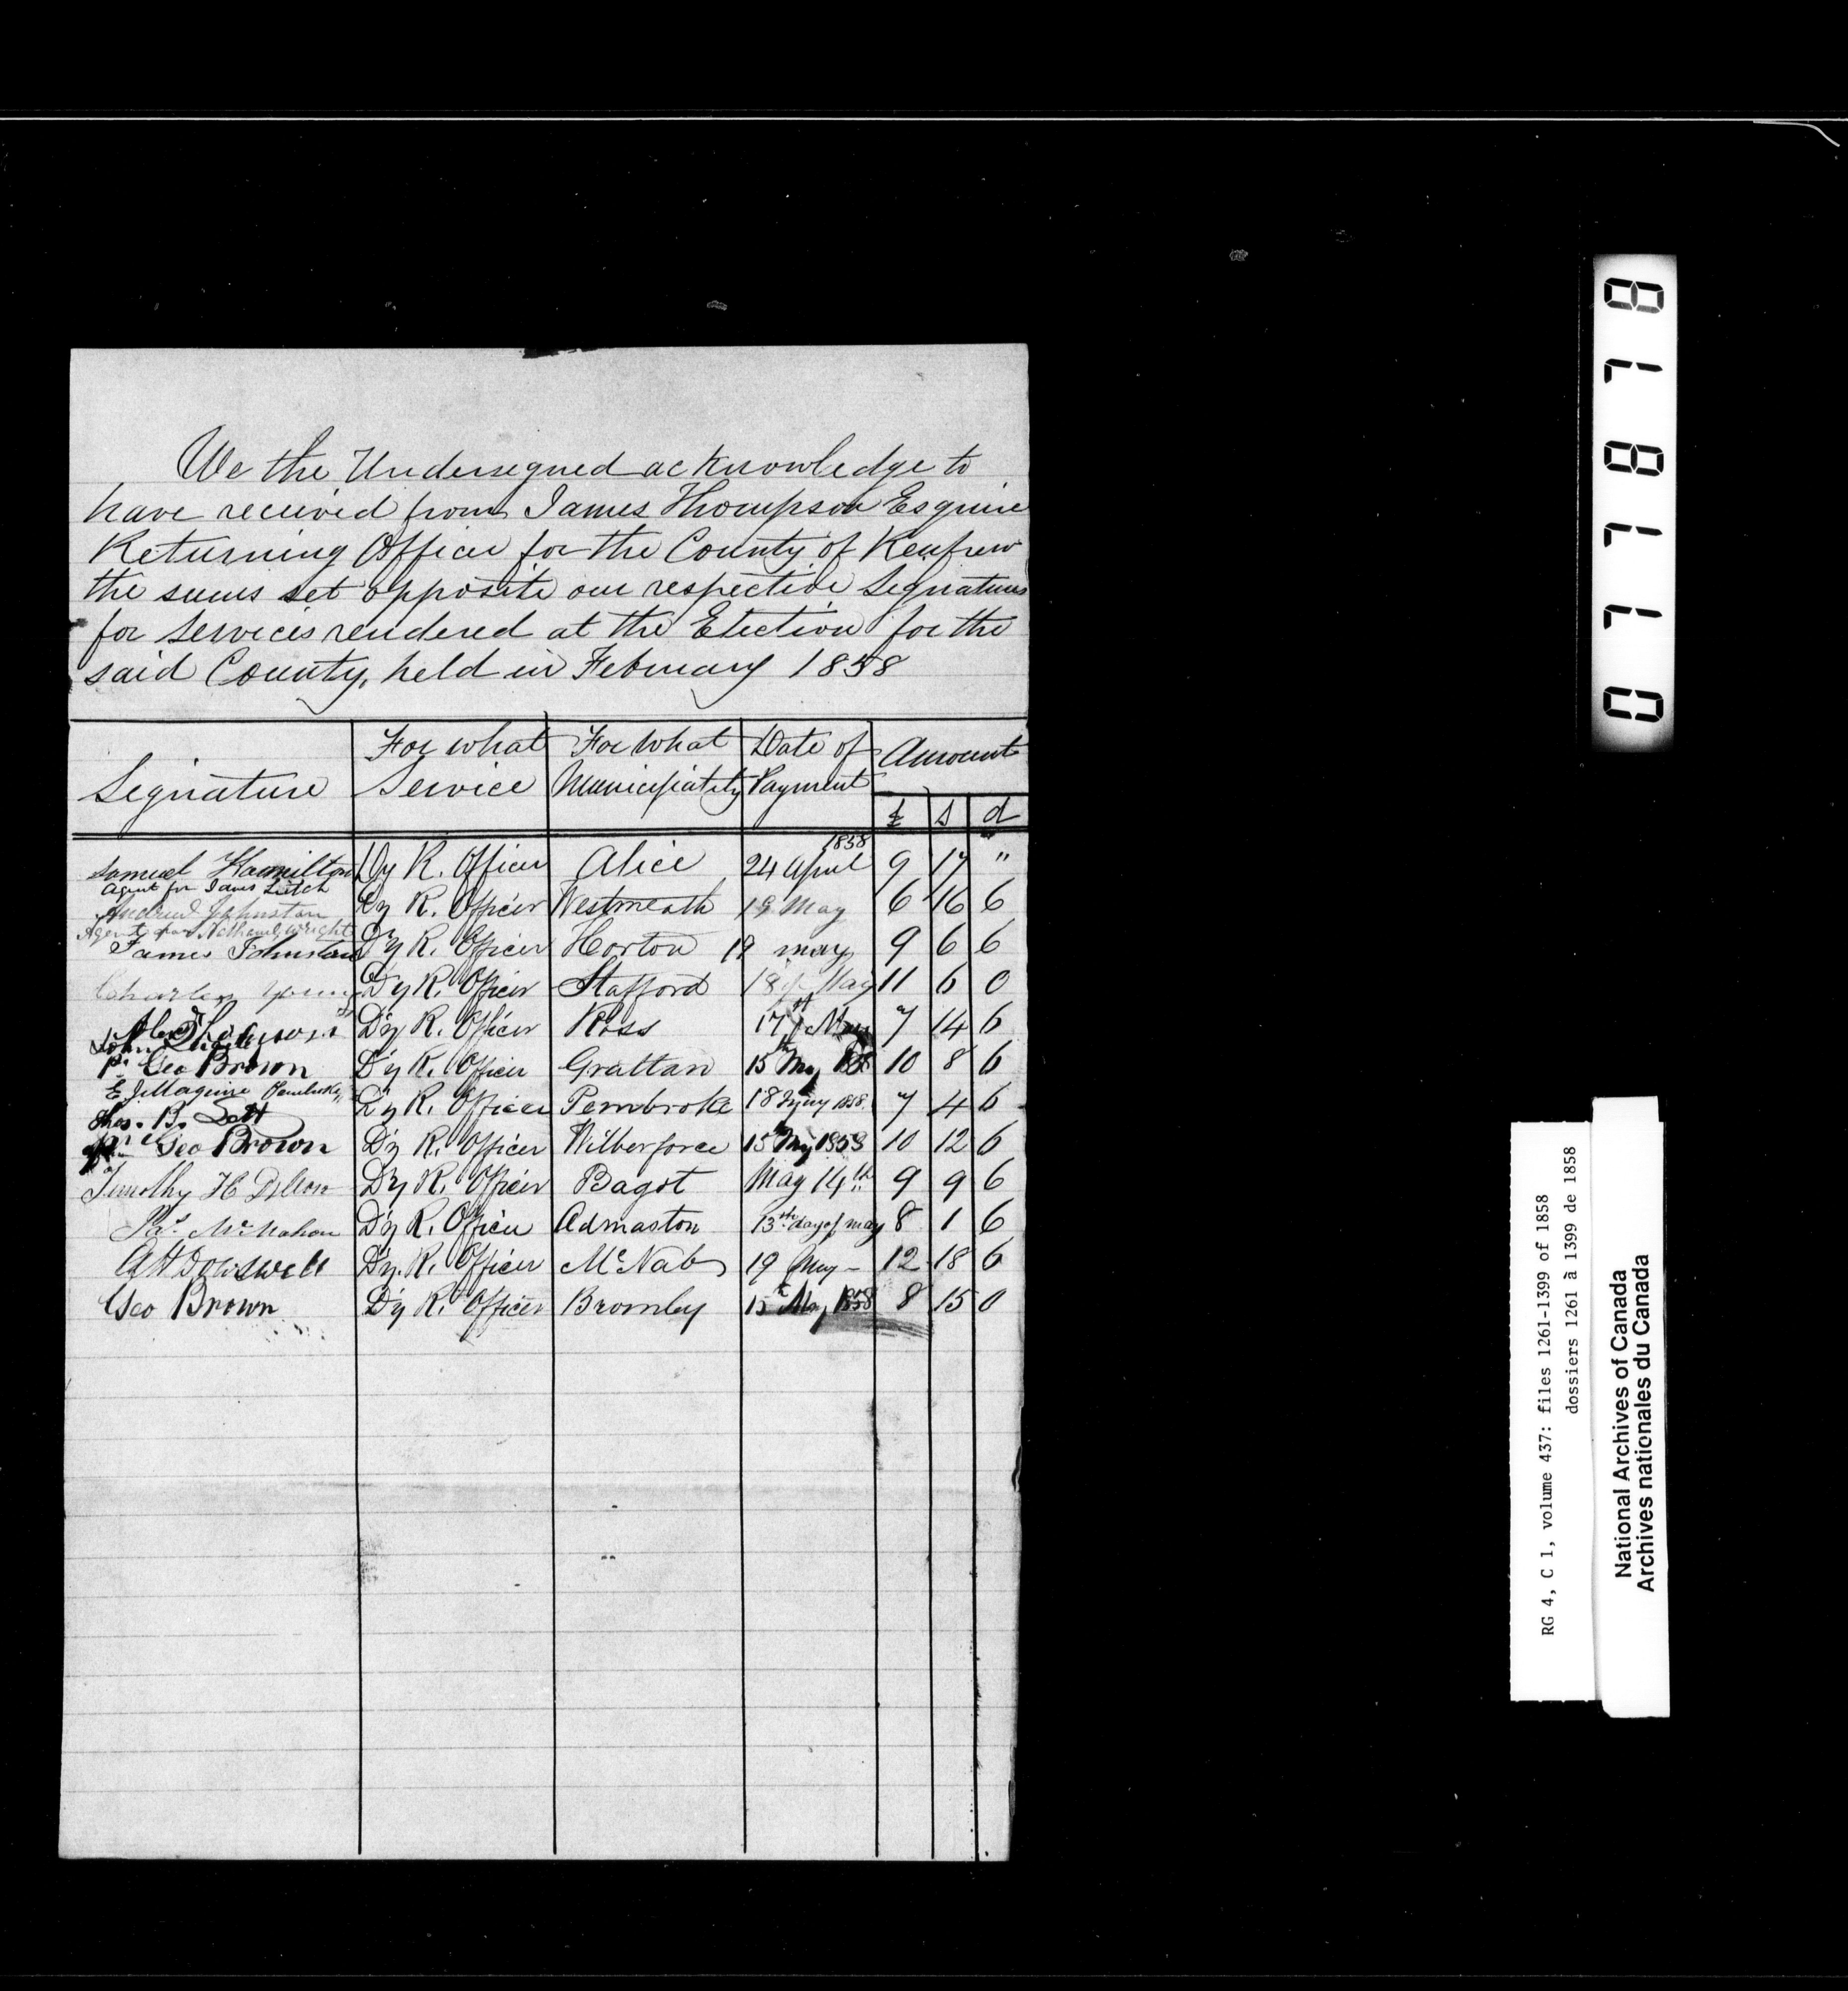 We the Undersigned acknowledge to
have received from James Thompson Esquire
Returning Officer for the County of Renfrew
the sums set opposite our respective Signatures
for Services rendered at the Election for the
said County, held in February 1858
Signature For what Service For What Municipality Date of Payment Amount
£ s d
1858
Samuel Hamilton Dy R. Officer Alice 24 April 9 17 "
Agent for James Leitch
Andrew Johnston Dy R. Officer Westmeath 19 May 6 16 6
Agent for Nathaniel Wright
James Johnston Dy R. Officer Horton 19 may 9 6 6
Charles Young Dy R. Officer Stafford 18 May 11 6 0
Dy R. Officer Ross 17th May 7 14 6
John
pr Geo Brown Dy R. Officer Grattan 15th May 1858 10 8 6
E J Maguire Pembroke Dy R. Officer Pembroke 18 May 1858 7 4 6
Thos. B. Lett
pr Geo Brown Dy R. Officer Wilberforce 15th May 1858 10 12 6
Timothy H Dillon Dy R. Officer Bagot May 14th 9 9 6
Pat. McMahon Dy R. Officer Admaston 13th day of may 8 1 6
A H Dowswell Dy. R. Officer McNab 19 May - 12 18 6
Geo Brown Dy R. Officer Bromley 15th May 1858 8 15 0
0 7 7 8 7 8
RG 4, C 1, volume 437: files 1261-1399 of 1858
dossiers 1261 à 1399 de 1858
National Archives of Canada
Archives nationales du Canada